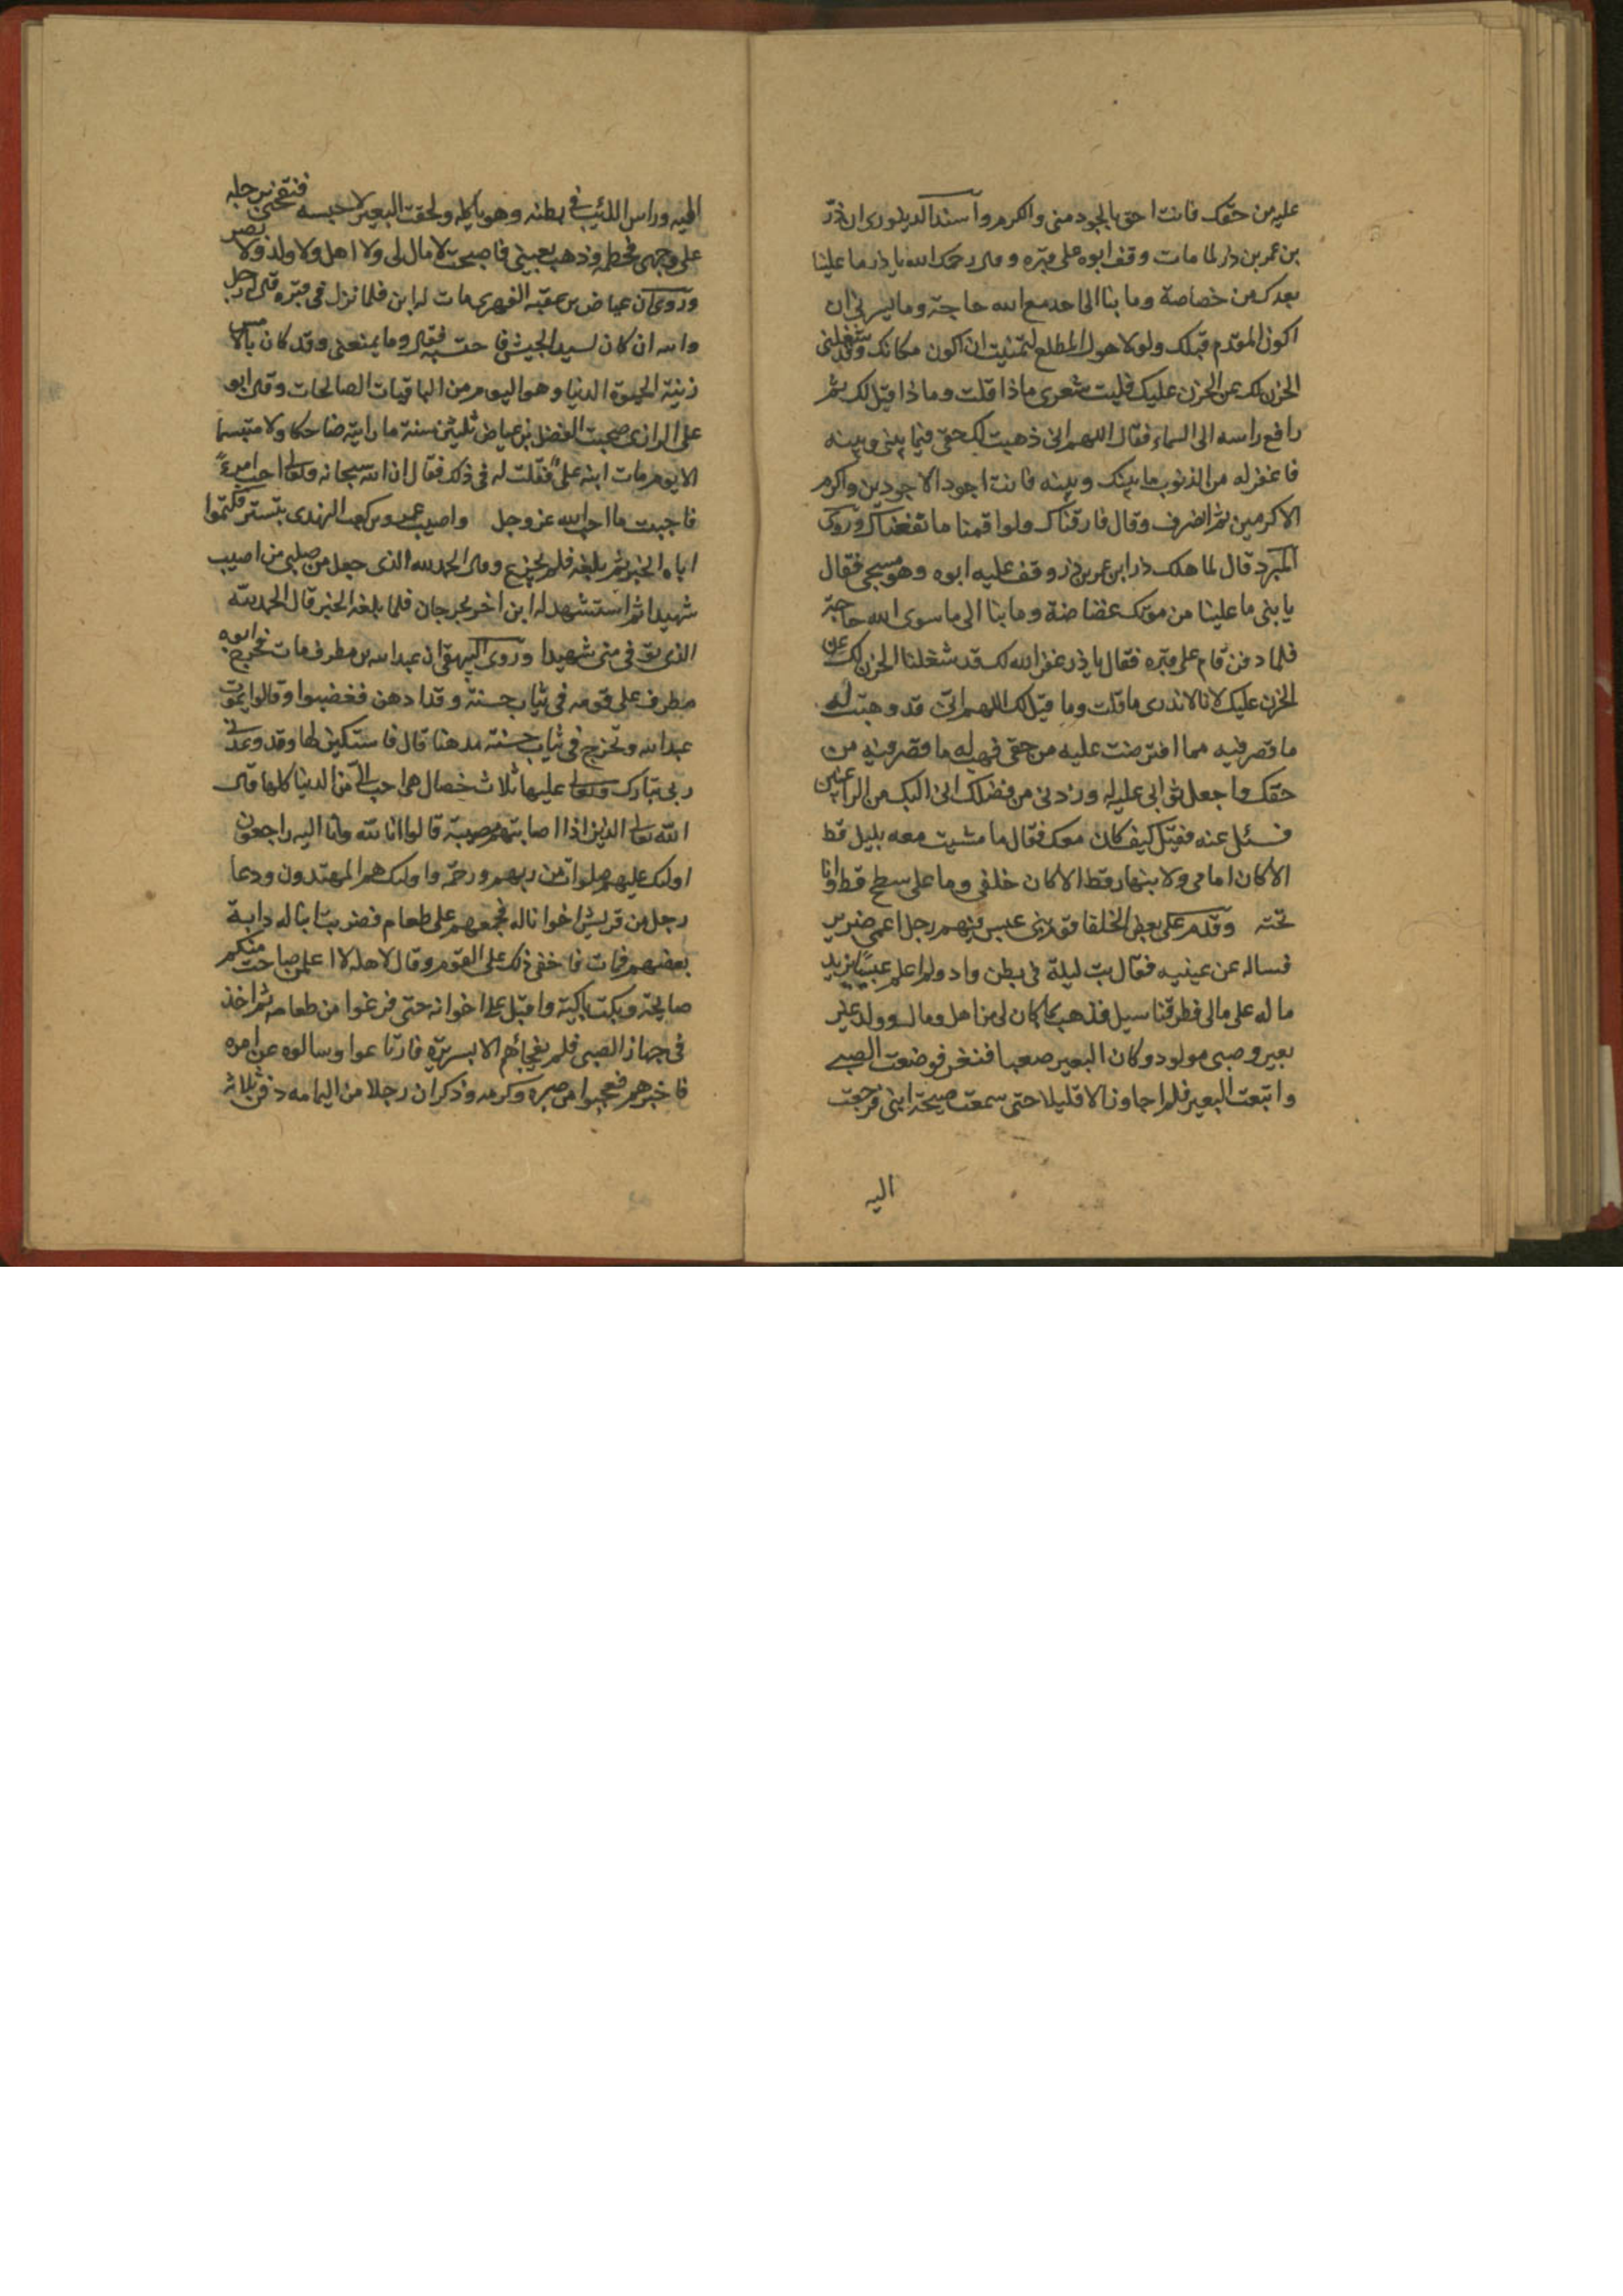 عليه من حقك فانت احق بالجود منى والكرم واسند الدينورى ان ذر
بن عمر بن ذر لما مات وقف ابوه على قبره وقال رحمك الله يا ذر ما علينا
بعدك من خصاصة وما بنا الى احد مع الله حاجة وما يسرنى ان
اكون المقدم قبلك ولولا هول المطلع لتمنيت ان اكون مكانك وقد شغلنى
الحزن لك عن الحزن عليك فليت شعرى ماذا قلت وماذا قيل لك ثم
رافع راسه الى السماء فقال اللهم انى ذهبت لك حقى فيما بينى وبينه
فاغفر له من الذنوب ما بينك وبينه فانت اجود الاجودين واكرم
الاكرمين ثم انصرف وقال فارقناك ولو اقمنا ما نفعناك وروى
المبرد قال لما هلك ذر ابن عمر بن ذر وقف عليه ابوه وهو مسجى فقال
يا بنى ما علينا من موتك غضاضة وما بنا الى ما سوى الله حاجة
فلما دفن قام على قبره فقال يا ذر غفر الله لك قد شغلنا الحزن لك عن
الحزن عليك لانا لا ندرى ما قلت وما قيل لك اللهم انى قد وهبت له
ما قصر فيه مما افترضت عليه من حقى فهب له ما قصر فيه من
حقك واجعل ثوابى عليه له وزدنى من فضلك انى اليك من الراغبين
فسئل عنه فقيل كيف كان معك فقال ما مشيت معه بليل قط
الا كان امامى ولا بنهار قط الا كان خلفى وما على سطح قط وانا
تحته وقدم على بعض الخلفا قوم بنى عبس فيهم رجل اعمى ضرير
فساله عن عينيه فقال بت ليلة فى بطن واد ولم اعلم عبسيا يزيد
ماله على مالى فطرقنا سيل فذهب بما كان لى من اهل ومال وولد غير
بعير وصبى مولود وكان البعير صعبا فنفر فوضعت الصبى
واتبعت البعير فلم اجاوز الا قليلا حتى سمعت صيحة ابنى فرجعت
اليه
اليه وراس الذئب فى بطنه وهو ياكله ولحقت البعير لاحبسه فنفحنى برجله
على وجهى فحطمه وذهب بعينى فاصبحت لا مال لى ولا اهل ولا ولد ولا بصر
وروى ان عياض بن عقبه الفهرى مات له ابن فلما نزل فى قبره قال رجل
والله ان كان لسيد الجيش فاحتسبه فقال وما يمنعنى وقد كان بالامس
زينة الحيوة الدنيا وهو اليوم من الباقيات الصالحات وقال ابو
على الرازى صحبت الفضل بن عياض ثلثين سنة ما رايته ضاحكا ولا متبسما
الا يوم مات ابنه على فقلت له فى ذلك فقال ان الله سبحانه وتعالى احب امرءً
فاحببت ما احب الله عز وجل واصيب عمرو بن كعب النهدى بتستر فكتموا
اباه الخبر ثم بلغه فلم يجزع وقال الحمد لله الذى جعل من صلبى من اصيب
شهيدا ثم استشهد له ابن اخر بجرجان فلما بلغه الخبر قال الحمد لله
الذى توفى منى شهيدا وروى البيهقى ان عبد الله بن مطرف مات فخرج ابوه
مطرف على قومه فى ثياب حسنة وقد ادهن فغضبوا وقالوا يموت
عبد الله وتخرج فى ثياب حسنة مدهنا قال فاستكين لها وقد وعدنى
ربى تبارك وتعالى عليها ثلاث خصال هى احب الى من الدنيا كلها قال
الله تعالى الذين اذا اصابتهم مصيبة قالوا انا لله وانا اليه راجعون
اولئك عليهم صلوات من ربهم ورحمة واولئك هم المهتدون ودعا
رجل من قريش اخوانا له فجمعهم على طعام فضربت ابنا له دابة
بعضهم فمات فاخفى ذلك على القوم وقال لاهله لا اعلمن صاحت منكم
صايحة وبكت باكية واقبل على اخوانه حتى فرغوا من طعامه ثم اخذ
فى جهاز الصبى فلم يفجاهم الا بسريره فارتاعوا وسالوه عن امره
فاخبرهم فعجبوا من صبره وكرمه وذكر ان رجلا من اليمامه دفن ثلاثة